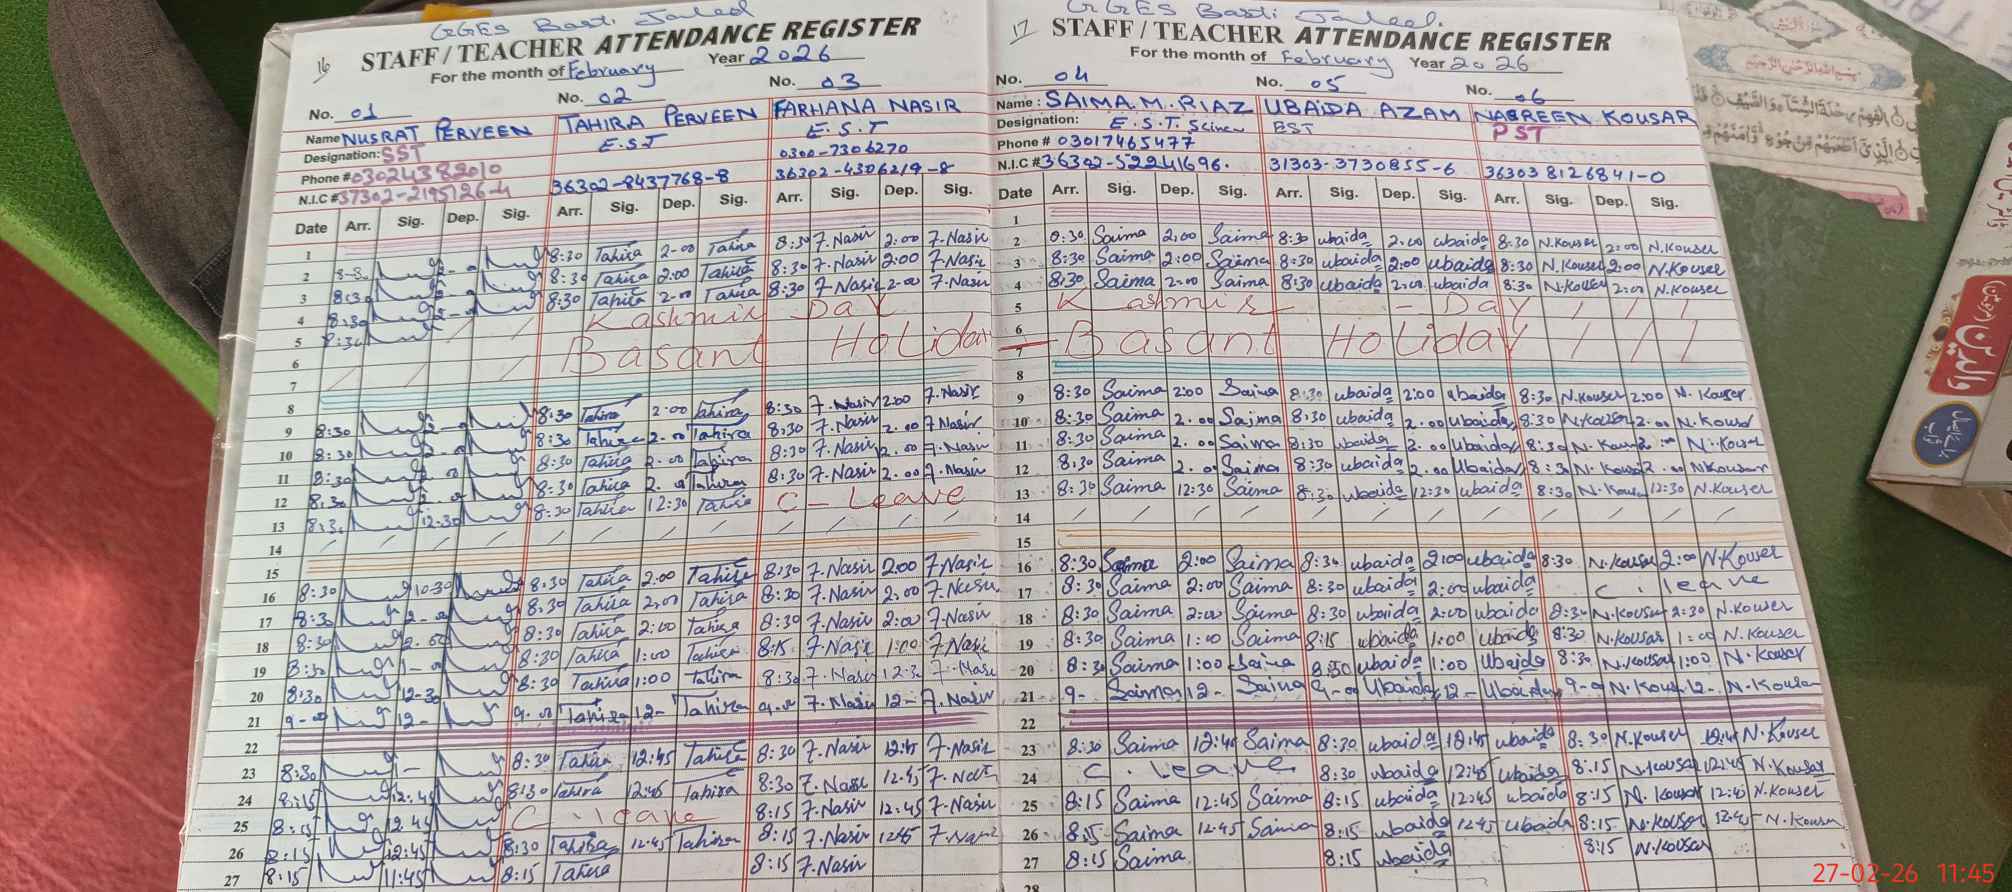 GGES Basti Jaleel
16
STAFF / TEACHER ATTENDANCE REGISTER
For the month of February Year 2026
No. 01 No. 02 No. 03
Name NUSRAT PERVEEN TAHIRA PERVEEN FARHANA NASIR
Designation: SST E.S.T E.S.T
Phone # 03024382010 0300-7306270
N.I.C # 37302-2195126-4 36302-8437768-8 36302-4306219-8
Date Arr. Sig. Dep. Sig. Arr. Sig. Dep. Sig. Arr. Sig. Dep. Sig.
1
2 8:30 Tahira 2-00 Tahira 8:30 F.Nasir 2:00 F.Nasir
3 8:30 8:30 Tahira 2:00 Tahira 8:30 F.Nasir 2:00 F.Nasir
4 8:30 8:30 Tahira 2-00 Tahira 8:30 F.Nasir 2-00 F.Nasir
5 Kashmir DAY
6 Basant Holiday
7
8
9 8:30 8:30 Tahira 2:00 Tahira 8:30 F.Nasir 2:00 F.Nasir
10 8:30 8:30 Tahira 2-00 Tahira 8:30 F.Nasir 2-00 F.Nasir
11 8:30 8:30 Tahira 2-00 Tahira 8:30 F.Nasir 2.00 F.Nasir
12 8:30 8:30 Tahira Tahira 8:30 F.Nasir 2.00 F.Nasir
13 12-30 8:30 Tahira 12:30 Tahira C - Leave
14
15
16 8:30 10:30 8:30 Tahira 2:00 Tahira 8:30 F.Nasir 2:00 F.Nasir
17 8:30 8:30 Tahira 2:00 Tahira 8:30 F.Nasir 2:00 F.Nasir
18 8:30 2-00 8:30 Tahira 2:00 Tahira 8:30 F.Nasir 2:00 F.Nasir
19 8:30 8:30 Tahira 1:00 Tahira 8:15 F.Nasir 1:00 F.Nasir
20 8:30 12-30 8:30 Tahira 1:00 Tahira 8:30 F.Nasir 12:30 F.Nasir
21 9-00 12- Tahira 12- Tahira F.Nasir 12- F.Nasir
22
23 8:30 8:30 Tahira 12:45 Tahira 8:30 F.Nasir 12:45 F.Nasir
24 8:15 12:45 8:30 Tahira 12:45 Tahira 8:30 F.Nasir 12:45 F.Nasir
25 8:15 12:45 C. leave 8:15 F.Nasir 12:45 F.Nasir
26 8:15 12:45 8:30 Tahira 12:45 Tahira 8:15 F.Nasir 12:45 F.Nasir
27 8:15 11:45 8:15 Tahira 8:15 F.Nasir
GGES Basti Jaleel.
17
STAFF / TEACHER ATTENDANCE REGISTER
For the month of February Year 2026
No. 04 No. 05 No. 06
Name : SAIMA.M.RIAZ UBAIDA AZAM NASREEN KOUSAR
Designation: E.S.T. Science EST PST
Phone # 03017465477
N.I.C # 36302-52241696. 31303-3730855-6 36303 8126841-0
Date Arr. Sig. Dep. Sig. Arr. Sig. Dep. Sig. Arr. Sig. Dep. Sig.
1
2 8:30 Saima 2:00 Saima 8:30 ubaida 2:00 ubaida 8:30 N.Kouser 2:00 N.Kouser
3 8:30 Saima 2:00 Saima 8:30 ubaida 2:00 ubaida 8:30 N.Kouser 2:00 N.Kouser
4 8:30 Saima 2-00 Saima 8:30 ubaida 2:00 ubaida 8:30 N.Kouser 2:00 N.Kouser
5 Kashmir - DAY
6 Basant Holiday
7
8
9 8:30 Saima 2:00 Saima 8:30 ubaida 2:00 ubaida 8:30 N.Kouser 2:00 N.Kouser
10 8:30 Saima 2.00 Saima 8:30 ubaida 2.00 ubaida 8:30 N.Kousar 2.00 N.Kousar
11 8:30 Saima 2.00 Saima 8:30 ubaida 2.00 Ubaida 8:30 N.Kousar N.Kousar
12 8:30 Saima 2.00 Saima 8:30 ubaida 2.00 Ubaida 8:30 N.Kousar 2.00 N.Kousar
13 8:30 Saima 12:30 Saima 8:30 ubaida 12:30 ubaida 8:30 N.Kousar 12:30 N.Kouser
14
15
16 8:30 Saima 2:00 Saima 8:30 ubaida 2:00 ubaida 8:30 N.Kouser 2:00 N.Kouser
17 8:30 Saima 2:00 Saima 8:30 ubaida 2:00 ubaida C. leave
18 8:30 Saima 2:00 Saima 8:30 ubaida 2:00 ubaida 8:30 N.Kousar 2:30 N.Kouser
19 8:30 Saima 1:00 Saima 8:15 ubaida 1:00 ubaida 8:30 N.Kousar 1:00 N.Kouser
20 8:30 Saima 1:00 Saima 8:30 ubaida 1:00 Ubaida 8:30 N.Kousar 1:00 N.Kouser
21 9- Saima 12- Saima 9-00 Ubaida 12- Ubaida N.Kousar 12- N.Kousar
22
23 8:30 Saima 12:45 Saima 8:30 ubaida 12:45 ubaida 8:30 N.Kouser 12:45 N.Kouser
24 C. leave 8:30 ubaida 12:45 ubaida 8:15 N.Kousar 12:45 N.Kousar
25 8:15 Saima 12:45 Saima 8:15 ubaida 12:45 ubaida 8:15 N.Kousar 12:45 N.Kouser
26 8:15 Saima 12:45 Saima 8:15 ubaida 12:45 ubaida 8:15 N.Kousar 12:45 N.Kousar
27 8:15 Saima 8:15 ubaida 8:15 N.Kousar
28
والدین
27-02-26 11:45